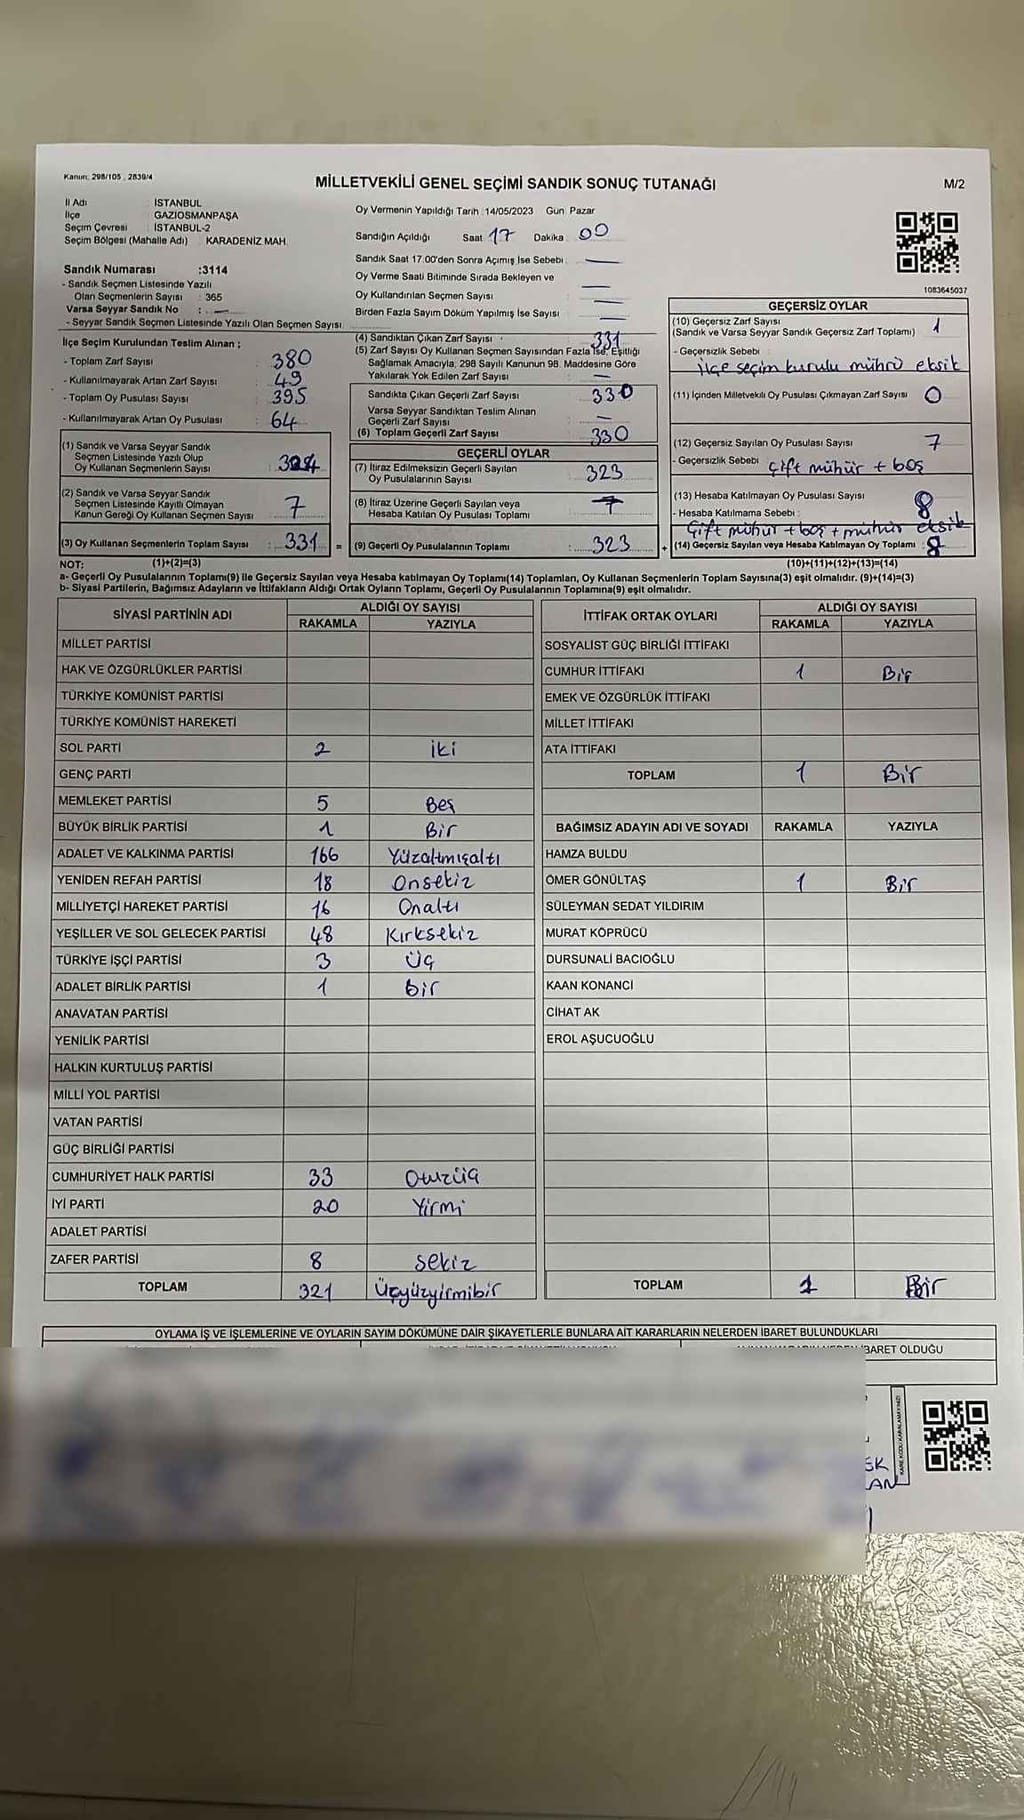 Kanun: 298/105 , 2839/4
MİLLETVEKİLİ GENEL SEÇİMİ SANDIK SONUÇ TUTANAĞI
M/2
İl Adı İSTANBUL
İlçe GAZİOSMANPAŞA
Seçim Çevresi İSTANBUL-2
Seçim Bölgesi (Mahalle Adı) KARADENİZ MAH.
Sandık Numarası :3114
- Sandık Seçmen Listesinde Yazılı
Olan Seçmenlerin Sayısı : 365
Varsa Seyyar Sandık No : —
- Seyyar Sandık Seçmen Listesinde Yazılı Olan Seçmen Sayısı
İlçe Seçim Kurulundan Teslim Alınan ;
- Toplam Zarf Sayısı : 380
- Kullanılmayarak Artan Zarf Sayısı : 49
- Toplam Oy Pusulası Sayısı : 395
- Kullanılmayarak Artan Oy Pusulası : 64
(1) Sandık ve Varsa Seyyar Sandık
Seçmen Listesinde Yazılı Olup
Oy Kullanan Seçmenlerin Sayısı : 324
(2) Sandık ve Varsa Seyyar Sandık
Seçmen Listesinde Kayıtlı Olmayan
Kanun Gereği Oy Kullanan Seçmen Sayısı : 7
(3) Oy Kullanan Seçmenlerin Toplam Sayısı : 331 =
Oy Vermenin Yapıldığı Tarih :14/05/2023 Gün: Pazar
Sandığın Açıldığı Saat 17 Dakika 00
Sandık Saat 17.00'den Sonra Açımış İse Sebebi : —
Oy Verme Saati Bitiminde Sırada Bekleyen ve
Oy Kullandırılan Seçmen Sayısı —
Birden Fazla Sayım Döküm Yapılmış İse Sayısı —
(4) Sandıktan Çıkan Zarf Sayısı : 331
(5) Zarf Sayısı Oy Kullanan Seçmen Sayısından Fazla İse, Eşitliği
Sağlamak Amacıyla, 298 Sayılı Kanunun 98. Maddesine Göre
Yakılarak Yok Edilen Zarf Sayısı : —
Sandıkta Çıkan Geçerli Zarf Sayısı : 330
Varsa Seyyar Sandıktan Teslim Alınan
Geçerli Zarf Sayısı : —
(6) Toplam Geçerli Zarf Sayısı : 330
GEÇERLİ OYLAR
(7) İtiraz Edilmeksizin Geçerli Sayılan
Oy Pusulalarının Sayısı : 323
(8) İtiraz Üzerine Geçerli Sayılan veya
Hesaba Katılan Oy Pusulası Toplamı :
(9) Geçerli Oy Pusulalarının Toplamı : 323 +
1083645037
GEÇERSİZ OYLAR
(10) Geçersiz Zarf Sayısı
(Sandık ve Varsa Seyyar Sandık Geçersiz Zarf Toplamı) : 1
- Geçersizlik Sebebi
ilçe seçim kurulu mührü eksik
(11) İçinden Milletvekili Oy Pusulası Çıkmayan Zarf Sayısı : 0
(12) Geçersiz Sayılan Oy Pusulası Sayısı : 7
- Geçersizlik Sebebi : çift mühür + boş
(13) Hesaba Katılmayan Oy Pusulası Sayısı : 8
- Hesaba Katılmama Sebebi :
Çift mühür + boş + mühür eksik
(14) Geçersiz Sayılan veya Hesaba Katılmayan Oy Toplamı : 8
NOT: (1)+(2)=(3) (10)+(11)+(12)+(13)=(14)
a- Geçerli Oy Pusulalarının Toplamı(9) İle Geçersiz Sayılan veya Hesaba katılmayan Oy Toplamı(14) Toplamları, Oy Kullanan Seçmenlerin Toplam Sayısına(3) eşit olmalıdır. (9)+(14)=(3)
b- Siyasi Partilerin, Bağımsız Adayların ve İttifakların Aldığı Ortak Oyların Toplamı, Geçerli Oy Pusulalarının Toplamına(9) eşit olmalıdır.
SİYASİ PARTİNİN ADI ALDIĞI OY SAYISI
RAKAMLA YAZIYLA
MİLLET PARTİSİ
HAK VE ÖZGÜRLÜKLER PARTİSİ
TÜRKİYE KOMÜNİST PARTİSİ
TÜRKİYE KOMÜNİST HAREKETİ
SOL PARTİ 2 iki
GENÇ PARTİ
MEMLEKET PARTİSİ 5 Beş
BÜYÜK BİRLİK PARTİSİ 1 Bir
ADALET VE KALKINMA PARTİSİ 166 Yüzaltmışaltı
YENİDEN REFAH PARTİSİ 18 Onsekiz
MİLLİYETÇİ HAREKET PARTİSİ 16 Onaltı
YEŞİLLER VE SOL GELECEK PARTİSİ 48 Kırksekiz
TÜRKİYE İŞÇİ PARTİSİ 3 Üç
ADALET BİRLİK PARTİSİ 1 bir
ANAVATAN PARTİSİ
YENİLİK PARTİSİ
HALKIN KURTULUŞ PARTİSİ
MİLLİ YOL PARTİSİ
VATAN PARTİSİ
GÜÇ BİRLİĞİ PARTİSİ
CUMHURİYET HALK PARTİSİ 33 Otuzüç
İYİ PARTİ 20 Yirmi
ADALET PARTİSİ
ZAFER PARTİSİ 8 Sekiz
TOPLAM 321 Üçyüzyirmibir
İTTİFAK ORTAK OYLARI ALDIĞI OY SAYISI
RAKAMLA YAZIYLA
SOSYALİST GÜÇ BİRLİĞİ İTTİFAKI
CUMHUR İTTİFAKI 1 Bir
EMEK VE ÖZGÜRLÜK İTTİFAKI
MİLLET İTTİFAKI
ATA İTTİFAKI
TOPLAM 1 Bir
BAĞIMSIZ ADAYIN ADI VE SOYADI RAKAMLA YAZIYLA
HAMZA BULDU
ÖMER GÖNÜLTAŞ 1 Bir
SÜLEYMAN SEDAT YILDIRIM
MURAT KÖPRÜCÜ
DURSUNALİ BACIOĞLU
KAAN KONANCİ
CİHAT AK
EROL AŞUCUOĞLU
TOPLAM 1 Bir
OYLAMA İŞ VE İŞLEMLERİNE VE OYLARIN SAYIM DÖKÜMÜNE DAİR ŞİKAYETLERLE BUNLARA AİT KARARLARIN NELERDEN İBARET BULUNDUKLARI
İBARET OLDUĞU